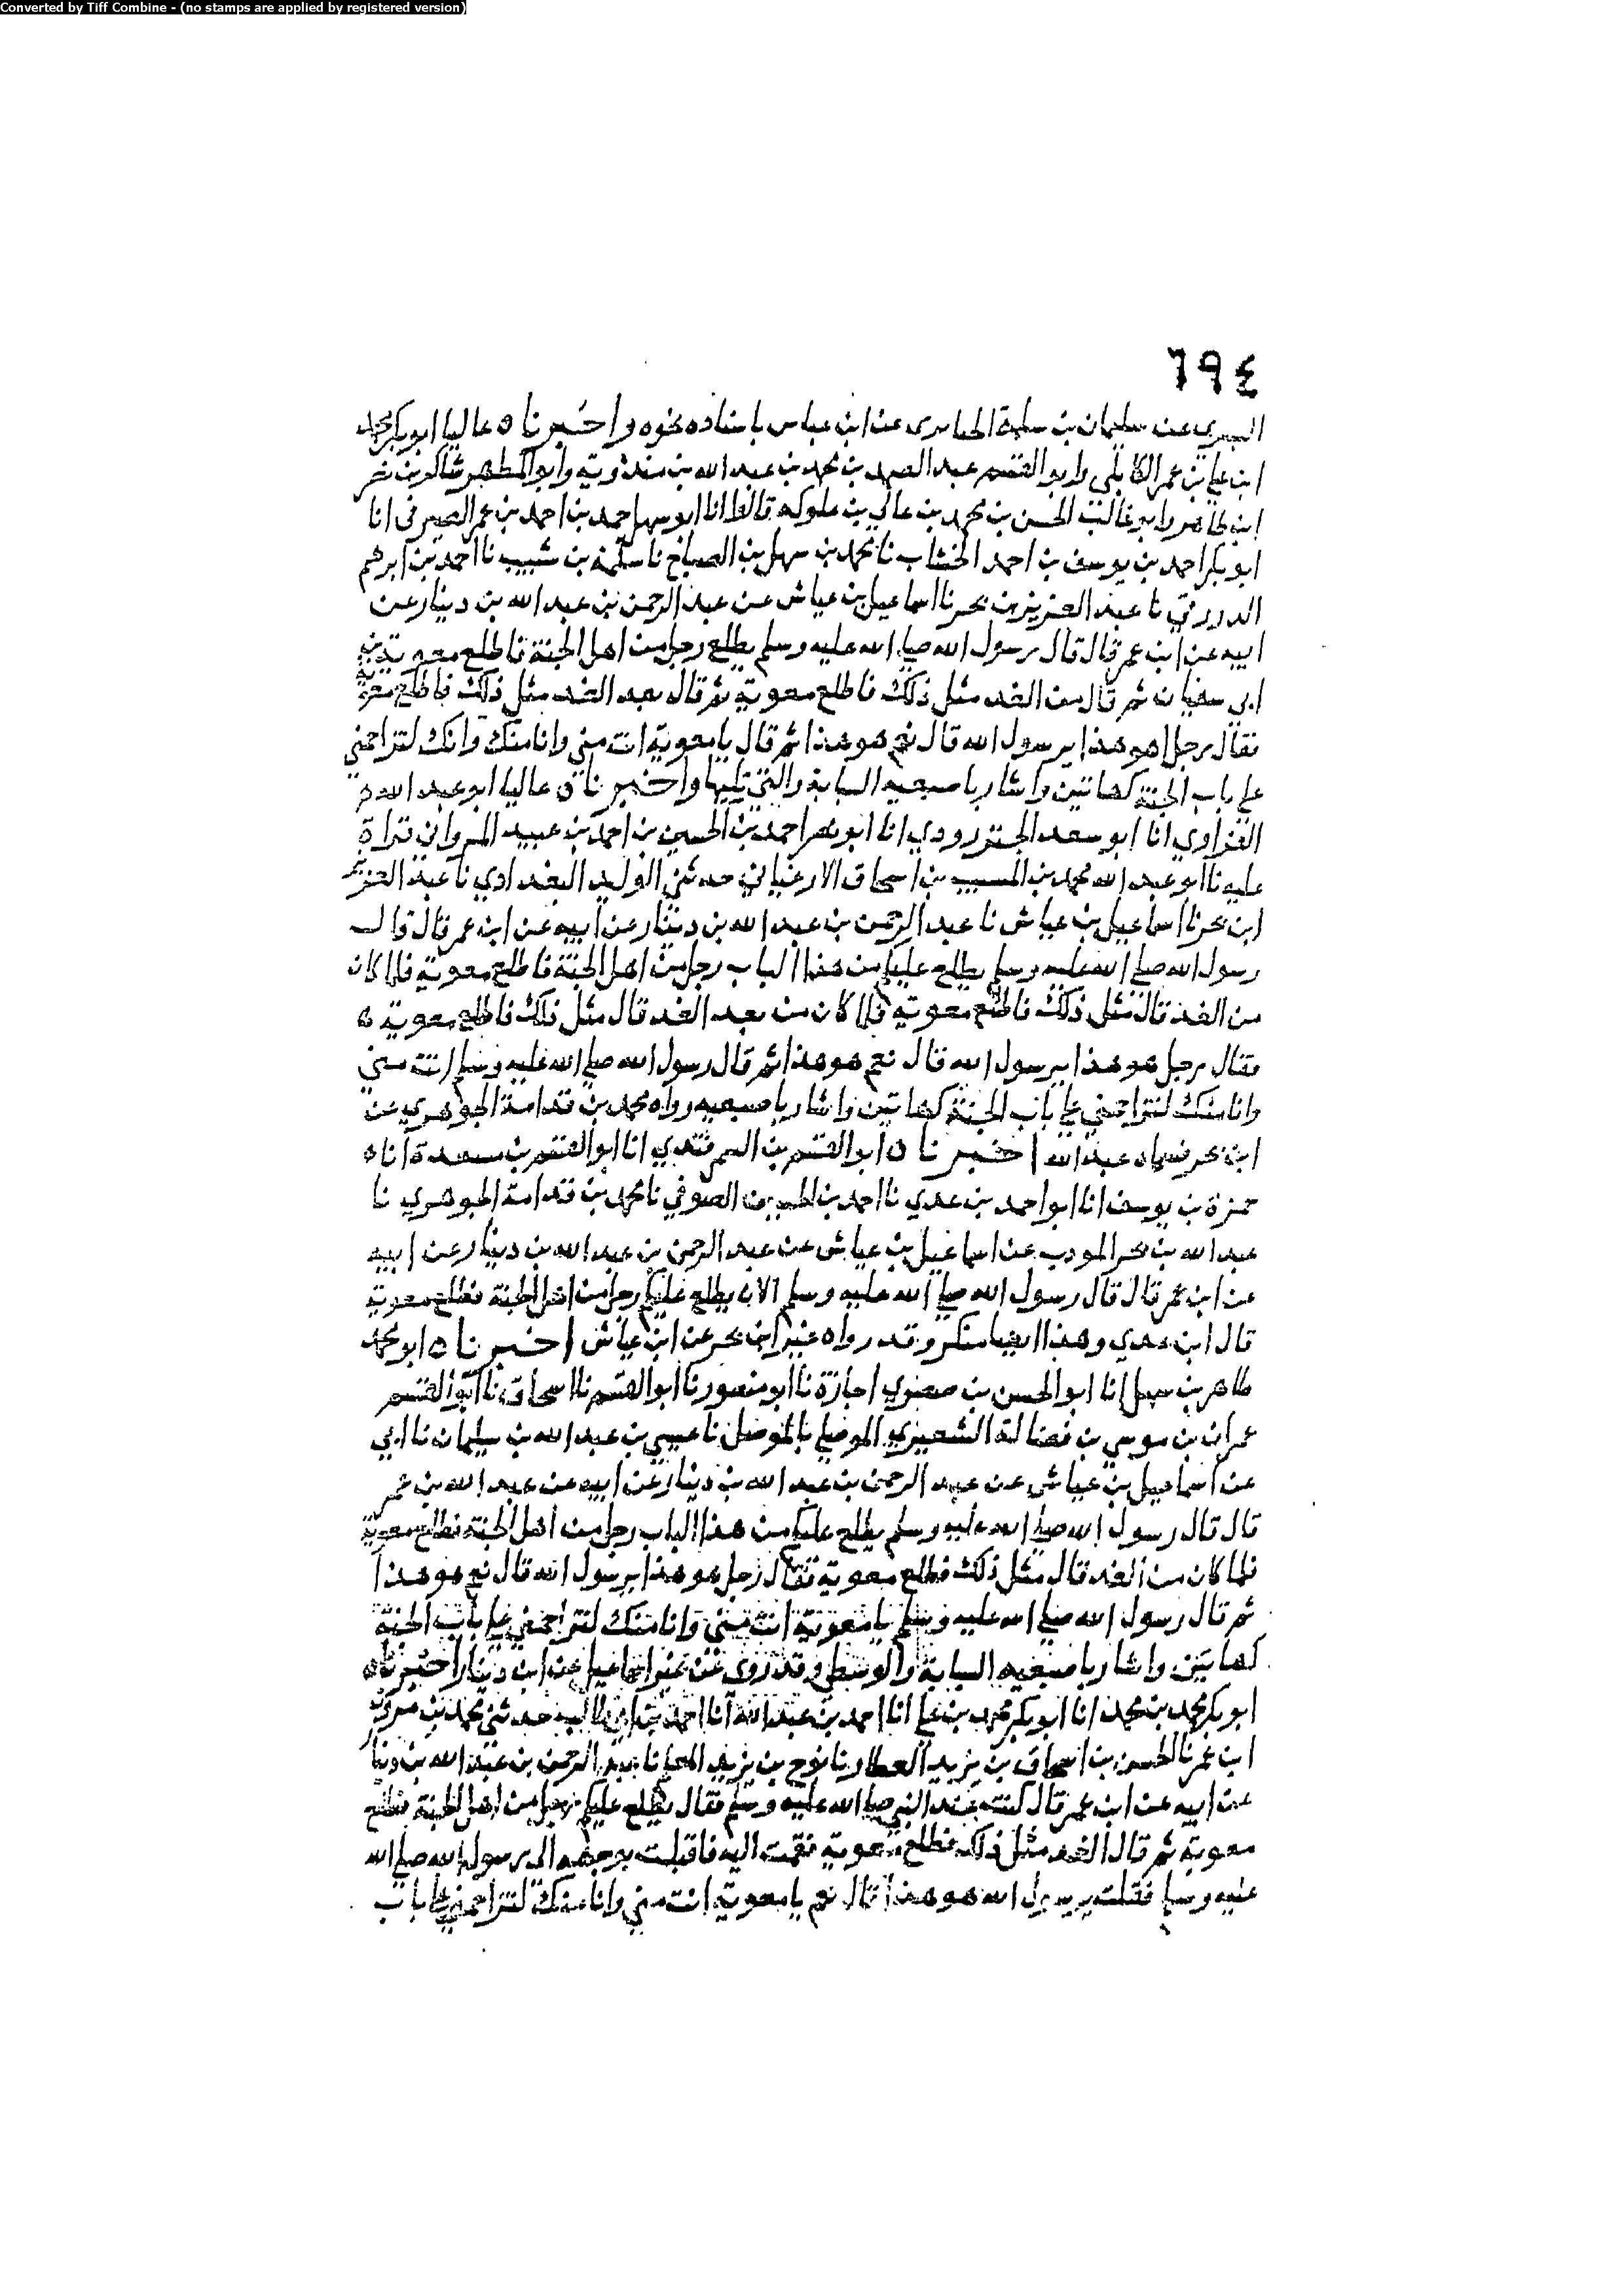 Converted by Tiff Combine - (no stamps are applied by registered version)
٦٩٤
السري عن سليمان بن سلمة الخبايري عن ابن عباس باسناده نحوه واخبرناه عاليا ابو بكر محمد
ابن علي بن عمر الكابلي وابو القسم عبد الصمد بن محمد بن عبد الله بن مندويه وابو المطهر شاكر بن نصر
ابن طاهر وابو غالب الحسن بن محمد بن عالي بن علوكه قالوا انا ابو سهل حمد بن احمد بن عمر الصيرفي انا
ابو بكر احمد بن يوسف بن احمد الخشاب نا محمد بن سهل بن الصباح نا سلمة بن شبيب نا احمد بن ابرهيم
الدورقي نا عبد العزيز بن بحر نا اسماعيل بن عياش عن عبد الرحمن بن عبد الله بن دينار عن
ابيه عن ابن عمر قال قال رسول الله صلى الله عليه وسلم يطلع رجل من اهل الجنة فاطلع معوية بن
ابي سفيان ثم قال من الغد مثل ذلك فاطلع معوية ثم قال بعد الغد مثل ذلك فاطلع معوية
فقال رجل اهو هذا يرسول الله قال نعم هو هذا ثم قال يا معوية انت مني وانا منك وانك لتزاحمني
على باب الجنة كهاتين واشار باصبعيه السبابة والتي تليها واخبرناه عاليا ابو عبد الله
الفزاوي انا ابو سعد الجنزرودي انا ابو نصر احمد بن الحسين بن احمد بن عبيد المرواني قراة
عليه نا ابو عبد الله محمد بن المسيب بن اسحاق الارغياني حدثني الوليد البغدادي نا عبد العزيز
ابن بحر نا اسماعيل بن عياش نا عبد الرحمن بن عبد الله بن دينار عن ابيه عن ابن عمر قال قال
رسول الله صلى الله عليه وسلم يطلع عليكم من هذا الباب رجل من اهل الجنة فاطلع معوية فلما كان
من الغد قال مثل ذلك فاطلع معوية فلما كان من بعد الغد قال مثل ذلك فاطلع معوية ه
فقال رجل هو هذا يرسول الله قال نعم هو هذا ثم قال رسول الله صلى الله عليه وسلم انت مني
وانا منك لتزاحمني على باب الجنة كهاتين واشار باصبعيه رواه محمد بن قدامة الجوهري عن
ابن بحر فسماه عبد الله اخبرناه ابو القسم بن السمرقندي انا ابو القسم بن مسعدة اناه
حمزة بن يوسف انا ابو احمد بن عدي نا احمد بن الحسين الصوفي نا محمد بن قدامة الجوهري نا
عبد الله بن بحر المودب عن اسماعيل بن عياش عن عبد الرحمن بن عبد الله بن دينار عن ابيه
عن ابن عمر قال قال رسول الله صلى الله عليه وسلم الان يطلع عليكم رجل من اهل الجنة فطلع معوية
قال ابن عدي وهذا ايضا منكر وقد رواه غير ابن بحر عن ابن عياش اخبرناه ابو محمد
طاهر بن سهل انا ابو الحسن بن صصري اجازة نا ابو منصور نا ابو القسم نا اسحاق نا ابو القسم
عمران بن موسي بن فضالة الشعيري الموصلي بالموصل نا عيسي بن عبد الله بن سليمان نا ابي
عن اسماعيل بن عياش عن عبد الرحمن بن عبد الله بن دينار عن ابيه عن عبد الله بن عمر
قال قال رسول الله صلى الله عليه وسلم يطلع عليكم من هذا الباب رجل من اهل الجنة فطلع معوية
فلما كان من الغد قال مثل ذلك فطلع معوية فقال رجل هو هذا يرسول الله قال نعم هو هذا
ثم قال رسول الله صلى الله عليه وسلم يا معوية انت مني وانا منك لتزاحمني على باب الجنة
كهاتين واشار باصبعيه السبابة والوسطى وقد روي عن غير اسماعيل عن ابن دينار اخبرناه
ابو بكر محمد بن محمد انا ابو بكر محمد بن علي انا احمد بن عبد الله انا احمد بن ابي طالب حدثني محمد بن مروان
ابن عمر نا الحسن بن اسحاق بن يزيد العطار نا نوح بن يزيد المعلم نا عبد الرحمن بن عبد الله بن دينار
عن ابيه عن ابن عمر قال كنت عند النبي صلى الله عليه وسلم فقال يطلع عليكم رجل من اهل الجنة فطلع
معوية ثم قال الغد مثل ذلك فطلع معوية فقمت اليه فاقبلت بوجهه الى رسول الله صلى الله
عليه وسلم فقلت يرسول الله هو هذا قال نعم يا معوية انت مني وانا منك لتزاحمني على باب